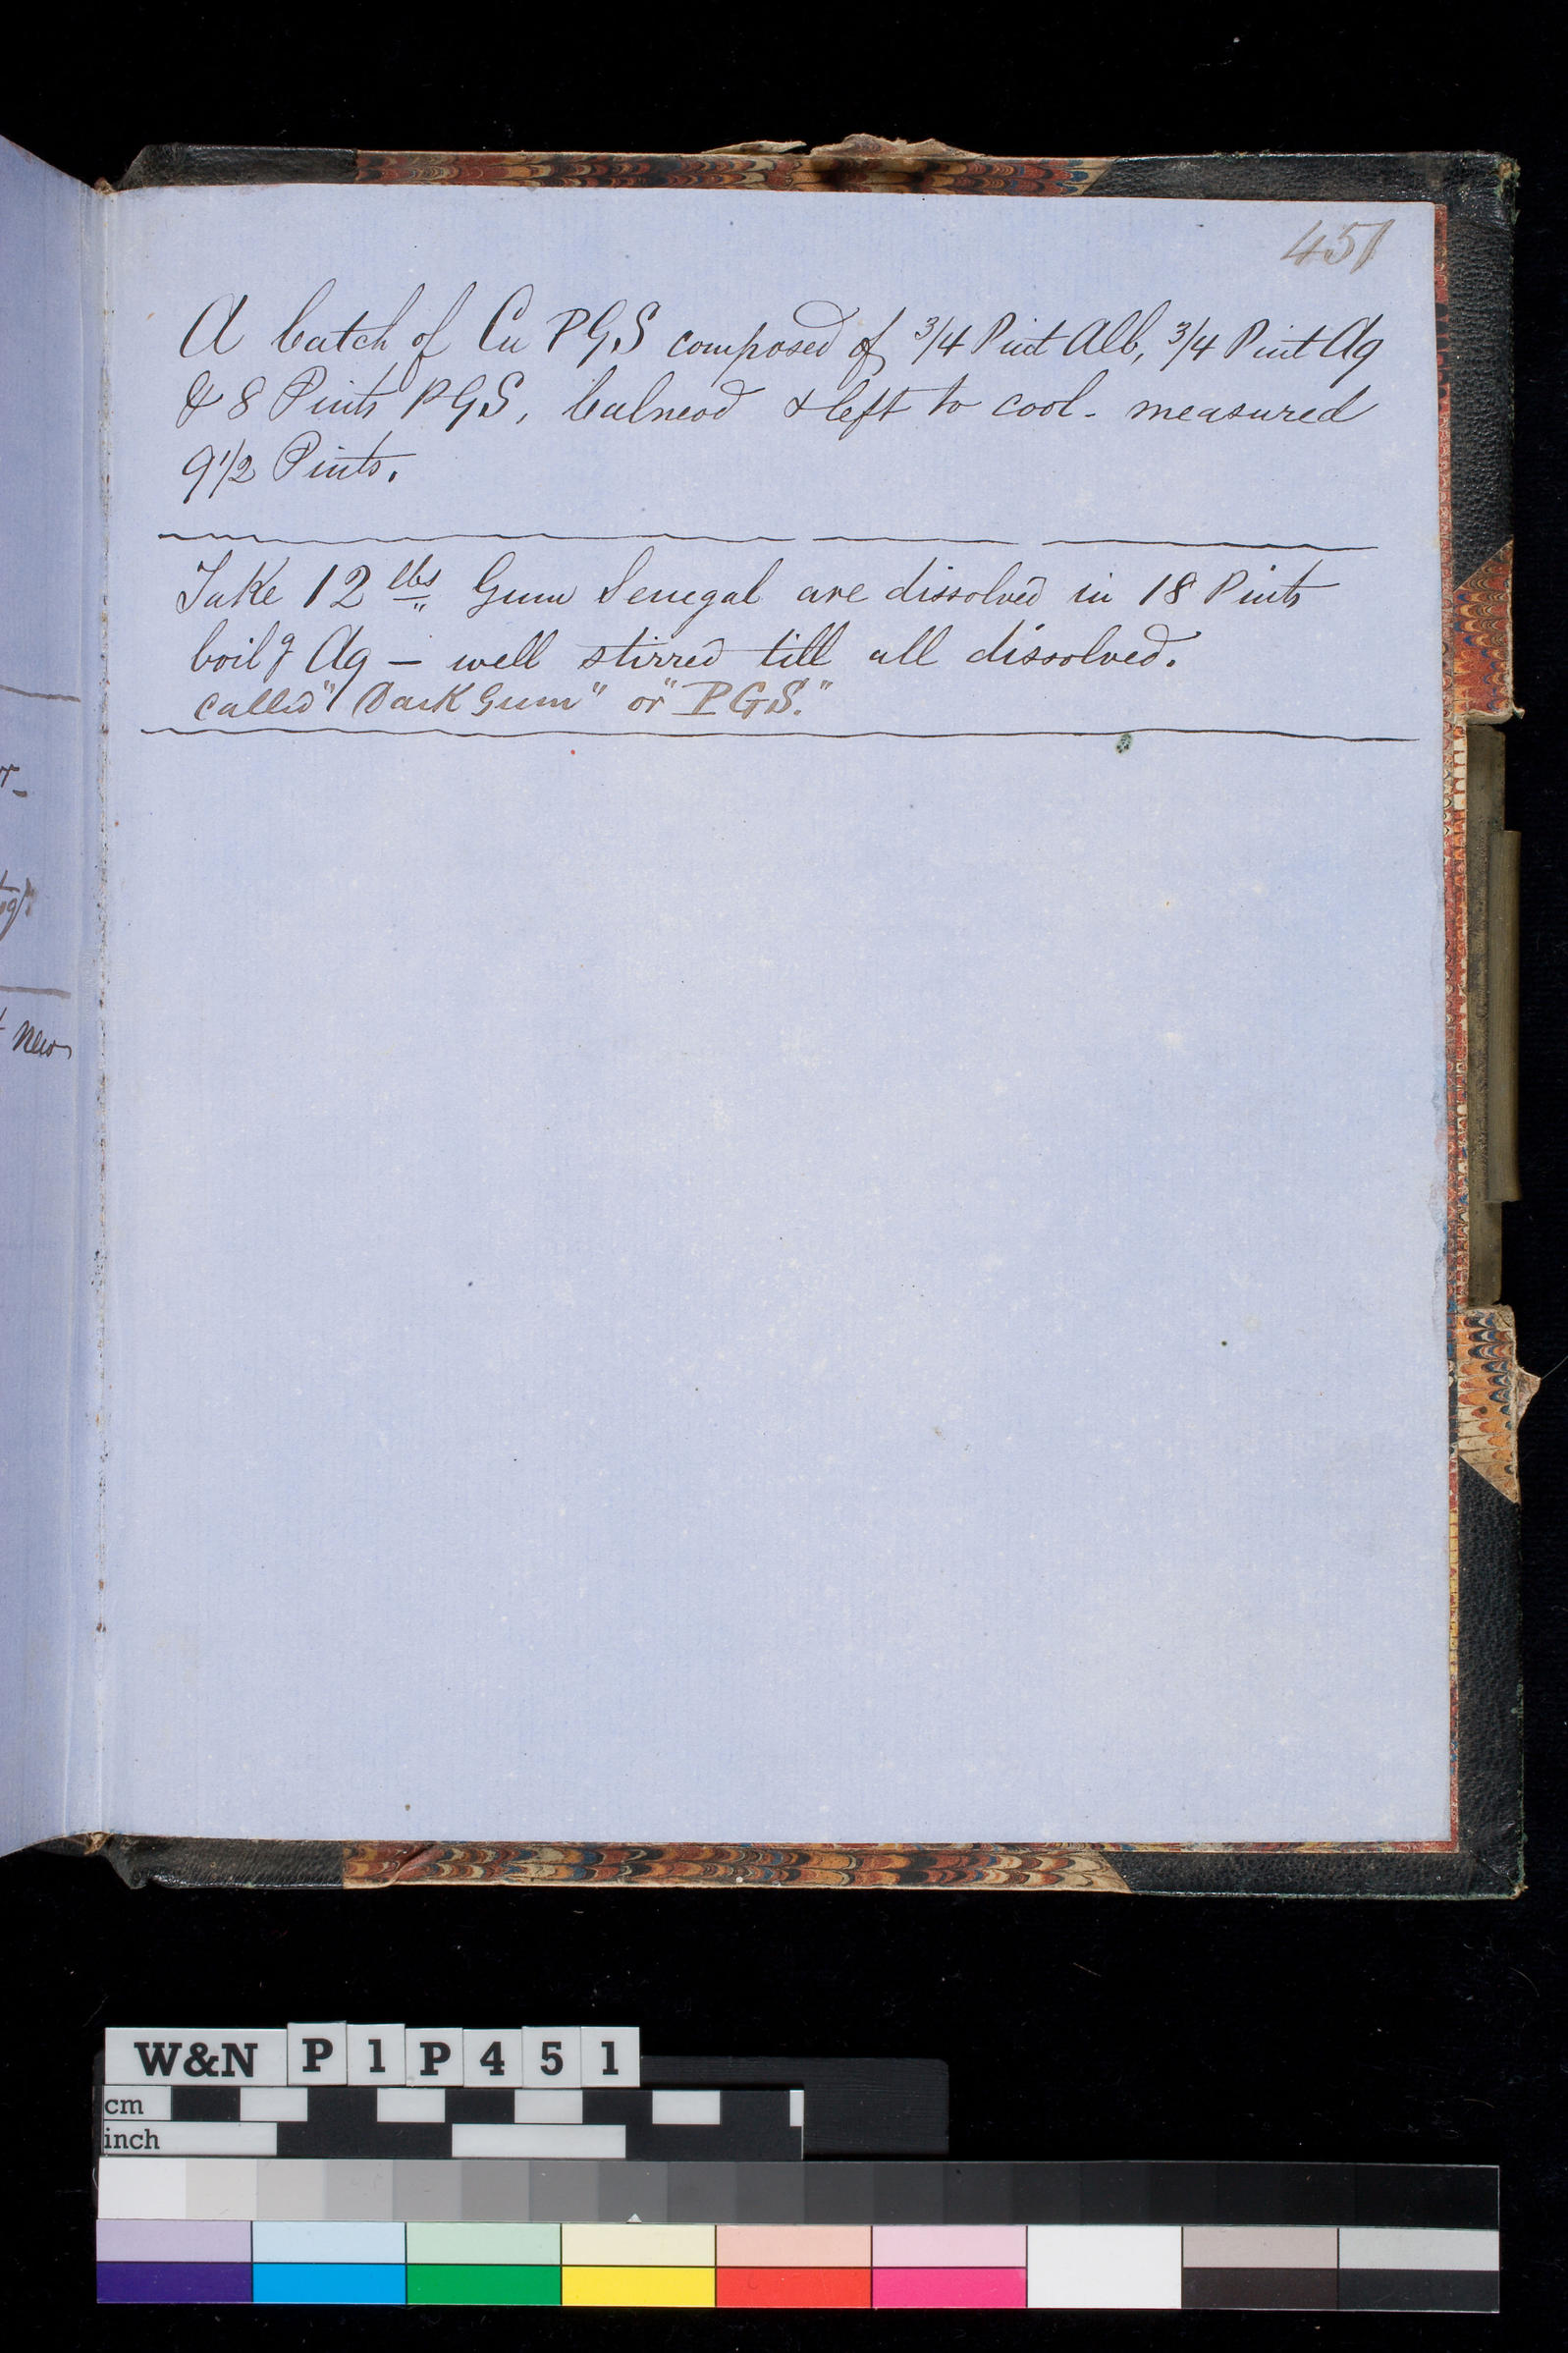 451
A batch of Cu PGS composed of 3/4 Pint Alb, 3/4 Pint Aq
& 8 Pints PGS, balneod & left to cool - measured
9 1/2 Pints.
Take 12 lbs Gum Senegal are dissolved in 18 Pints
boilg Aq — well stirred till all dissolved.
called "Dark Gum" or "PGS."
New
W&N P1P451
cm
inch